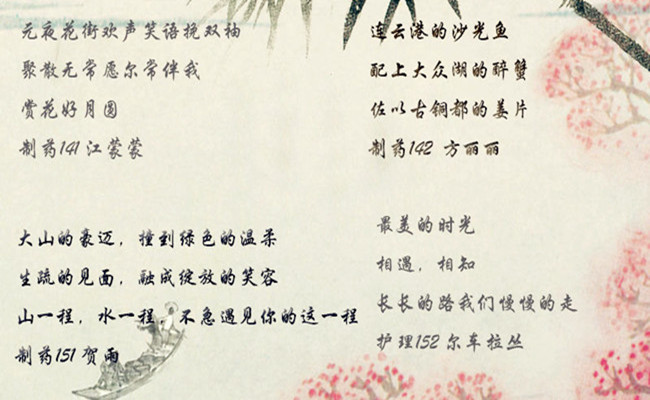 元夜花街欢声笑语挽双袖
聚散无常愿尔常伴我
赏花好月圆
制药141 江蒙蒙
连云港的沙光鱼
配上大众湖的醉蟹
佐以古铜都的姜片
制药142 方丽丽
大山的豪迈，撞到绿色的温柔
生疏的见面，融成绽放的笑容
山一程，水一程，不急遇见你的这一程
制药151 贺雨
最美的时光
相遇，相知
长长的路我们慢慢的走
护理152 尔车拉丛